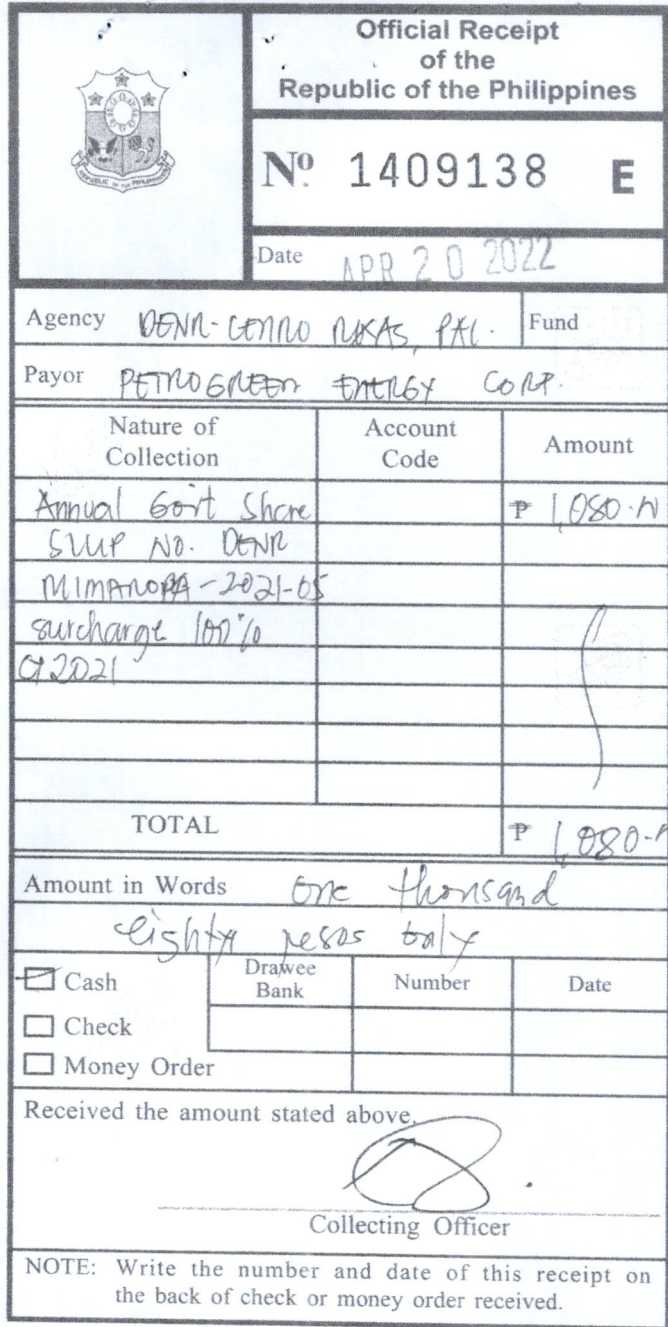 Official Receipt
of the
Republic of the Philippines
REPUBLIC OF THE PHILIPPINES
Nº 1409138 E
Date APR 20 2022
Agency DENR-CENRO ROXAS, PAL. Fund
Payor PETROGREEN ENERGY CORP.
Nature of Collection Account Code Amount
Annual Gov't Share ₱ 1,080.
SLUP NO. DENR
MIMAROPA-2021-05
surcharge 100%
2021
TOTAL ₱ 1,080-
Amount in Words One thousand
eighty pesos only
Cash Drawee Bank Number Date
Check
Money Order
Received the amount stated above.
Collecting Officer
NOTE: Write the number and date of this receipt on
the back of check or money order received.